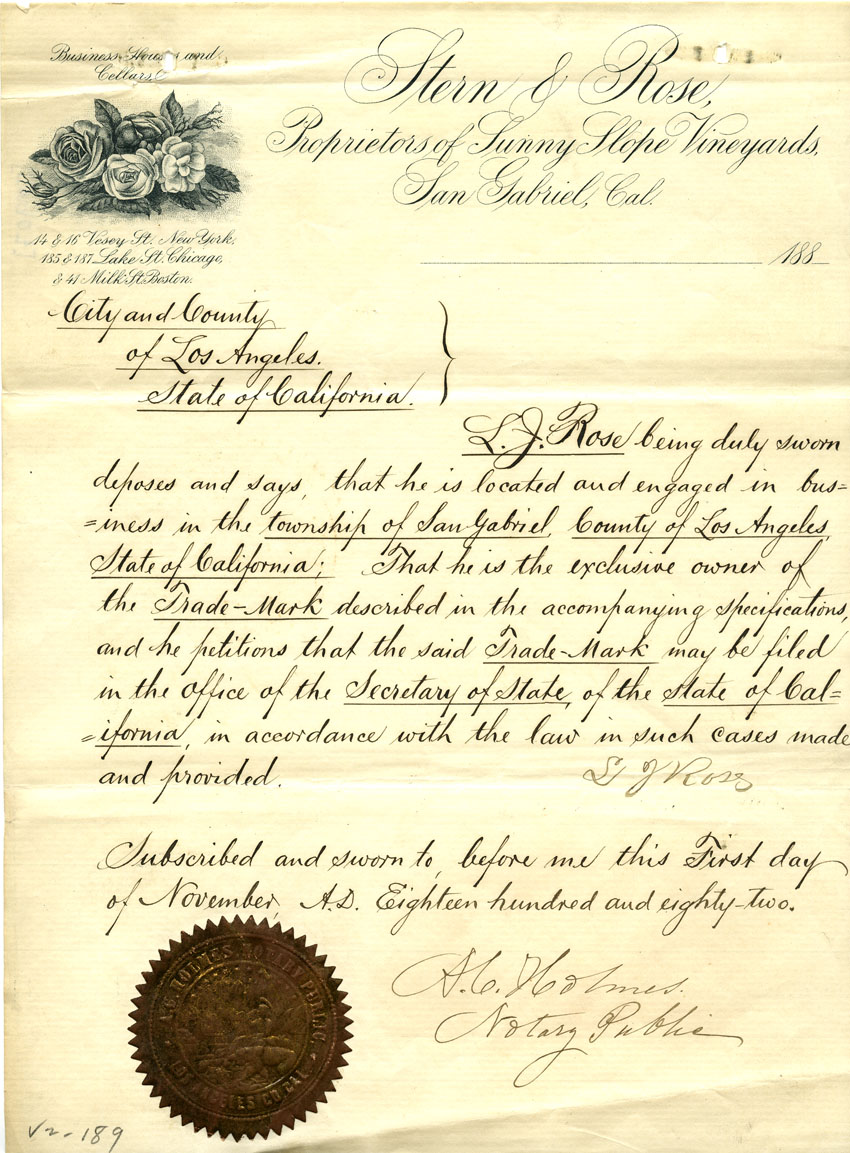 Business Houses and
Cellars
Stern & Rose,
Proprietors of Sunny Slope Vineyards,
San Gabriel, Cal.
14 & 16 Vesey St. New York,
185 & 187 Lake St. Chicago,
& 41 Milk St Boston.
188
City and County
of Los Angeles.
State of California.
L. J. Rose being duly sworn
deposes and says, that he is located and engaged in bus=
=iness in the township of San Gabriel, County of Los Angeles,
State of California; That he is the exclusive owner of
the Trade-Mark described in the accompanying specifications,
and he petitions that the said Trade-Mark may be filed
in the office of the Secretary of State, of the State of Cal=
=ifornia, in accordance with the law in such cases made
and provided.
L J Rose
Subscribed and sworn to, before me this First day
of November, A.D. Eighteen hundred and eighty-two.
A. C. Holmes.
Notary Public
A.C. HOLMES NOTARY PUBLIC
LOS ANGELES CO. CAL.
V2-189